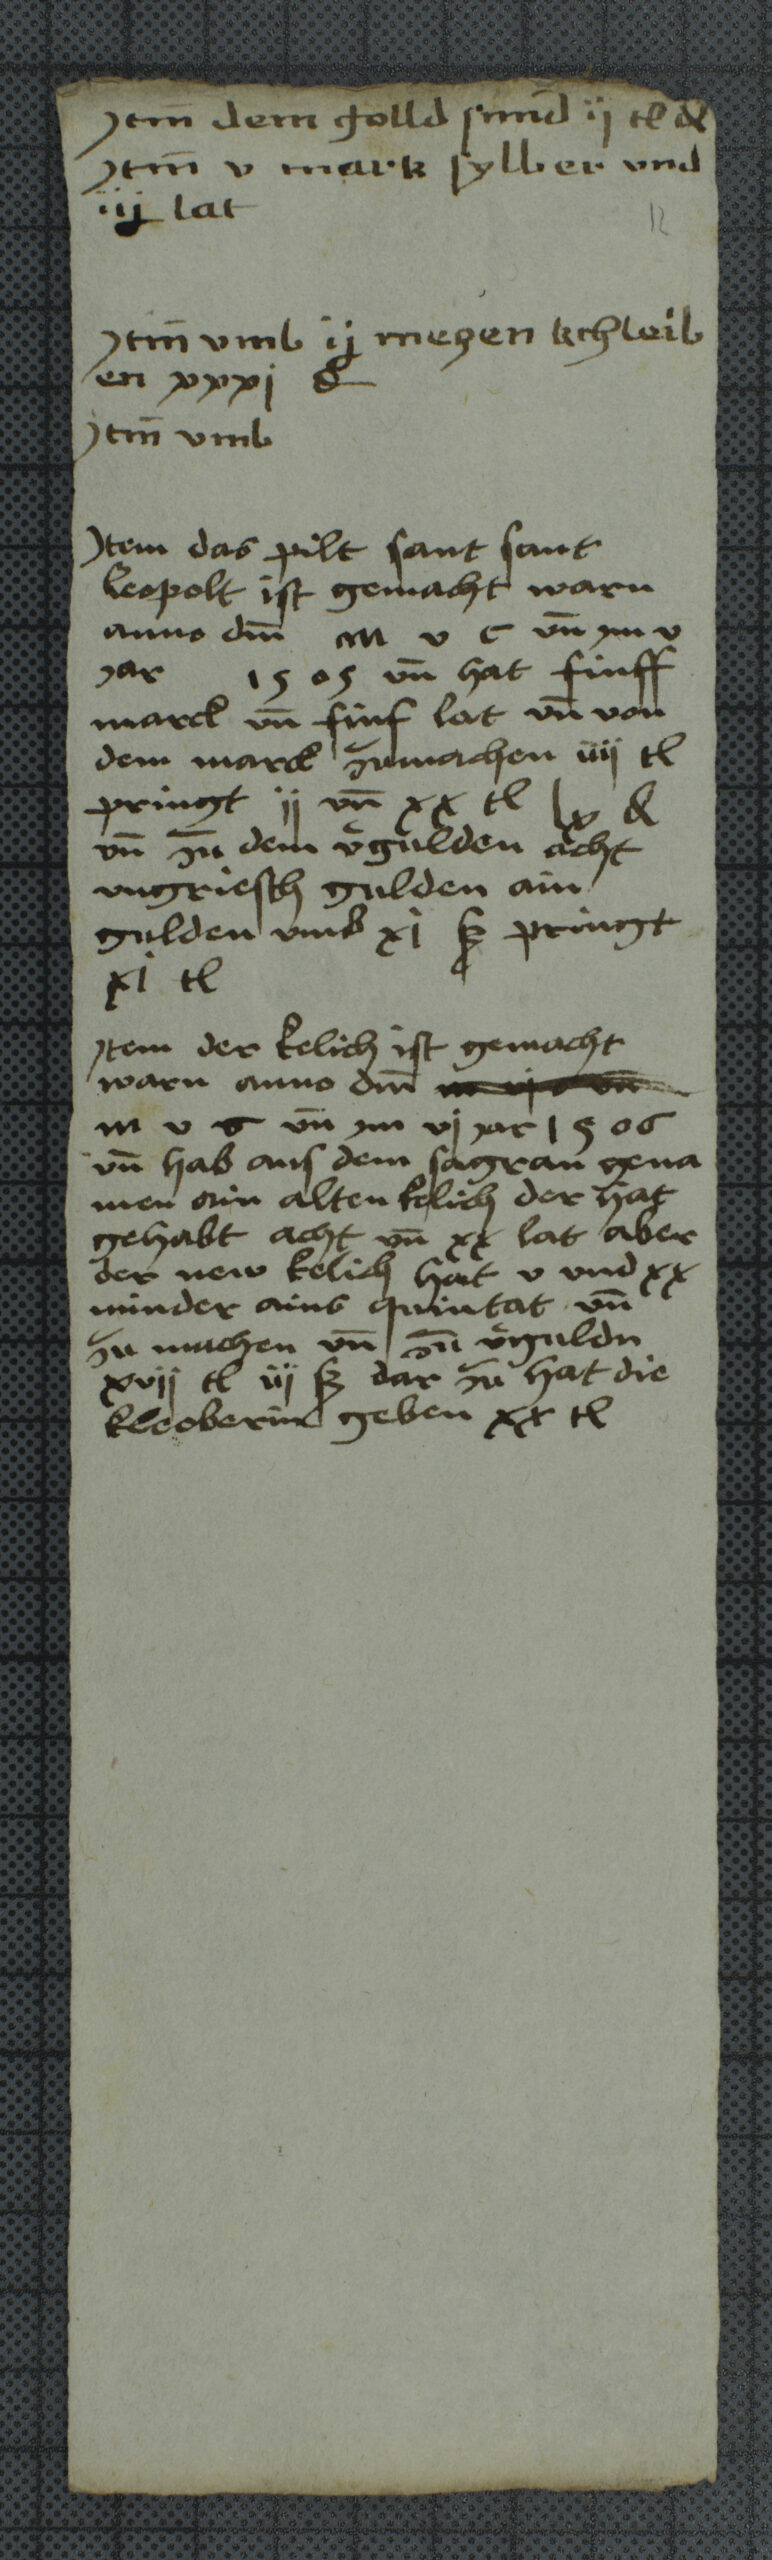 Jtm̄ dem golld sinnd̄ ij tl d
Jtm̄ v mark sylber vnd
iiij lat
12
Jtm̄ vmb ij meczen kchleib
en xxxj d
Jtm̄ vmb
Jtem das pilt sant sant
leopolt ist gemacht warn
anno dm̄ M v C vn̄ ym v
yar 1505 vn̄ hat finff
marck vn̄ finf lat vn̄ von
dem marck zumachen iiij tl
pringt ij vn̄ xx tl lx d
vn̄ zu dem v̄gulden acht
vngriesch gulden ain
gulden vmb xj ß pringt
xj tl
Jtem der kelich ist gemacht
warn anno dm̄
m v C vn̄ ym vj yar 1506
vn̄ hab aus dem sagran gena
men ain alten kelich der hat
gehabt acht vn̄ xx lat aber
der new kelich hat v vnd xx
minder ains quintat vn̄
zu machen vn̄ zu v̄guldn
xvij tl iij ß dar zu hat die
kleoberin geben xx tl